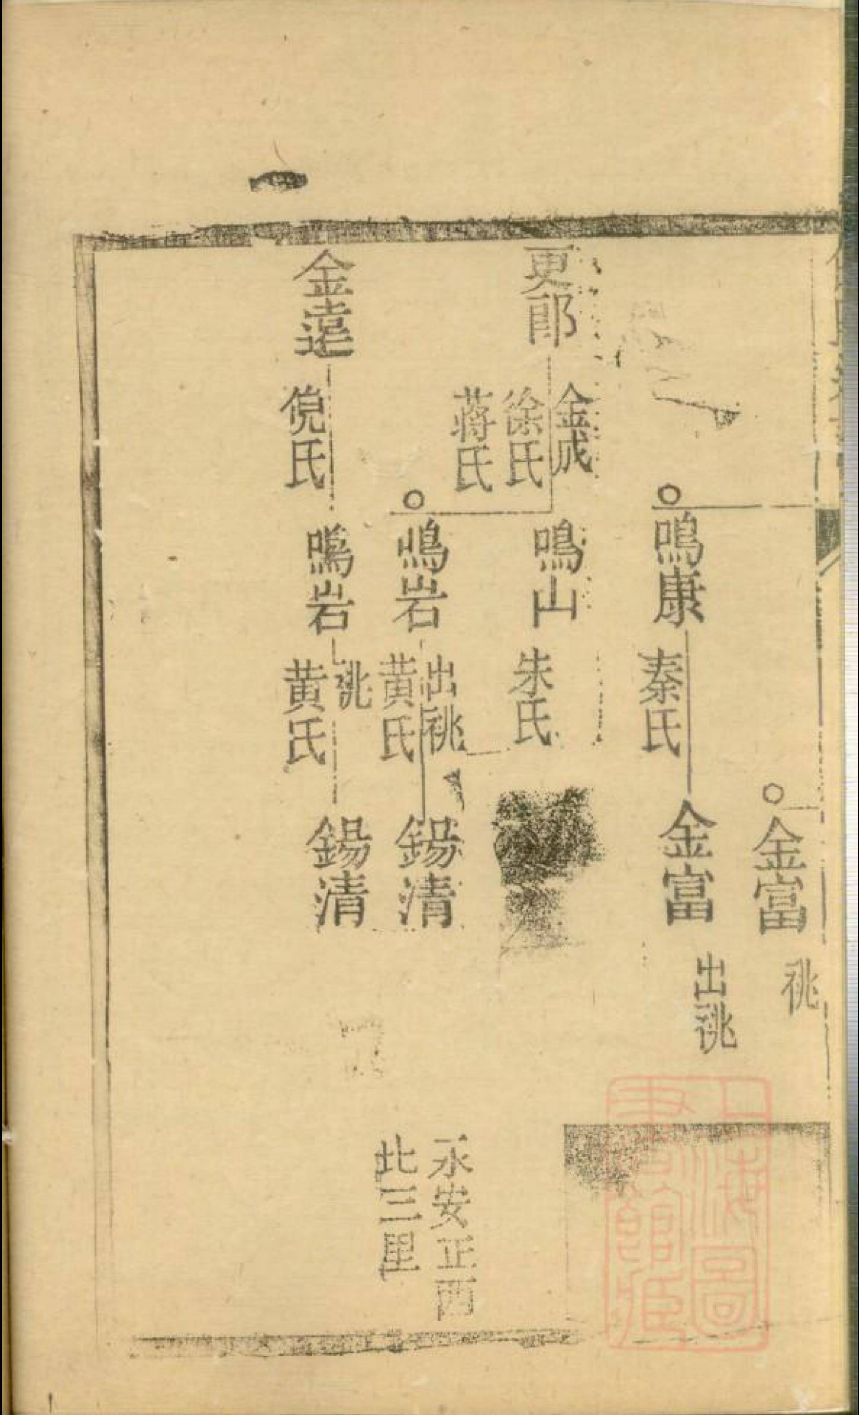 金富
祧
鳴康
秦氏
金富
出祧
更郎
金成
徐氏
蒋氏
鳴山
朱氏
鳴岩
出祧
黄氏
鍚清
永安正西
北三里
金遠
倪氏
鳴岩
祧
黄氏
鍚清
上海圖
書館藏